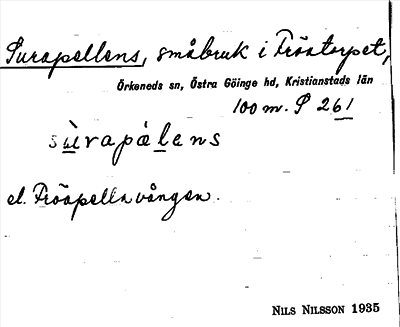 Surapellens, småbruk i Fröatorpet,
Örkeneds sn, Östra Göinge hd, Kristianstads län
100 m. P 261
sùrapàlens
el. Fröapellavången.
NILS NILSSON 1935